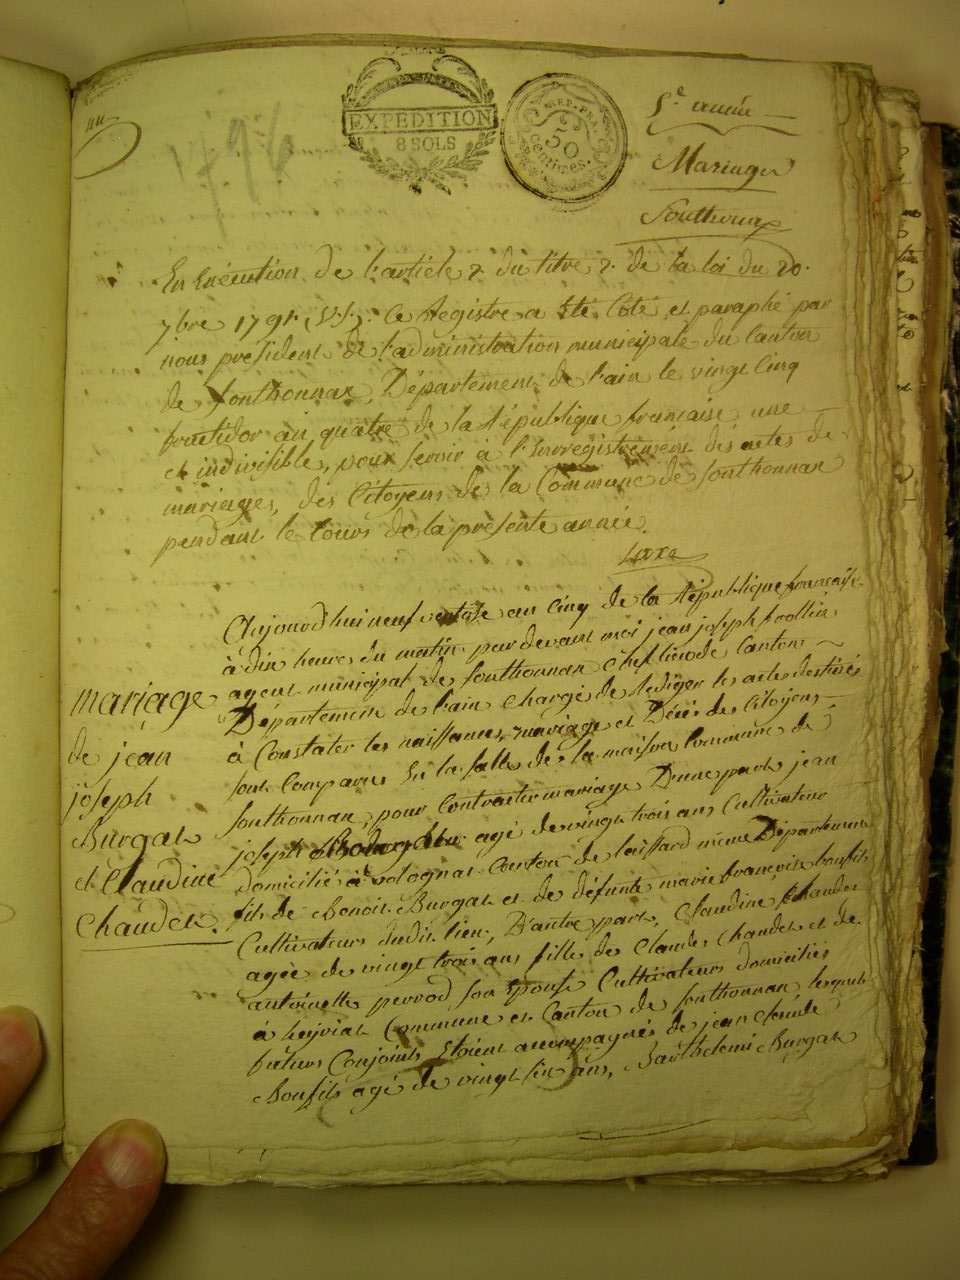 EXPEDITION
8 SOLS
REP. FRA.
50
Centimes.
5.e année
Mariages
Sonthonnax
1796
En Exécution de l'article 2. du titre 2. de la loi du 20.
7bre 1792. (v.s.). Ce Registre a été Coté et paraphé par
nous président de l'administration municipale du Canton
de Sonthonnax, Département de l'ain le vingt Cinq
fructidor an quatre de la République francaise une
et indivisible, pour servir à l'Enregistrement des actes de
mariages, des Citoyens de la Commune de Sonthonnax
pendant le Cours de la présente année.
mariage
de jean
joseph
Burgat
et Claudine
Chaudet.
Aujourd'hui neuf ventose an cinq de la République francaise
à dix heures du matin par devant moi jean joseph
agent municipal de Sonthonnax Chef lieu de Canton
Département de l'ain chargé de Rediger les actes destinés
à Constater les naissances, mariage et Décès des Citoyens
sont Comparus En la salle de la maison Commune de
Sonthonnax, pour Contracter mariage D'une part jean
joseph agé de vingt trois ans Cultivateur
domicilié à Volognat Canton de Leissard même Département
fils de Benoit Burgat et de défunte marie francoise bonfils
Cultivateurs dudit lieu, D'autre part, Claudine Chaudet
agée de vingt trois ans fille de Claude Chaudet et de
antoinette perrod son Epouse Cultivateurs domiciliés
à Heyriat Commune et Canton de Sonthonnax lesquels
futurs Conjoints Etoient accompagnés de jean Claude
Bonfils agé de vingt ans, Barthelemi Burgat